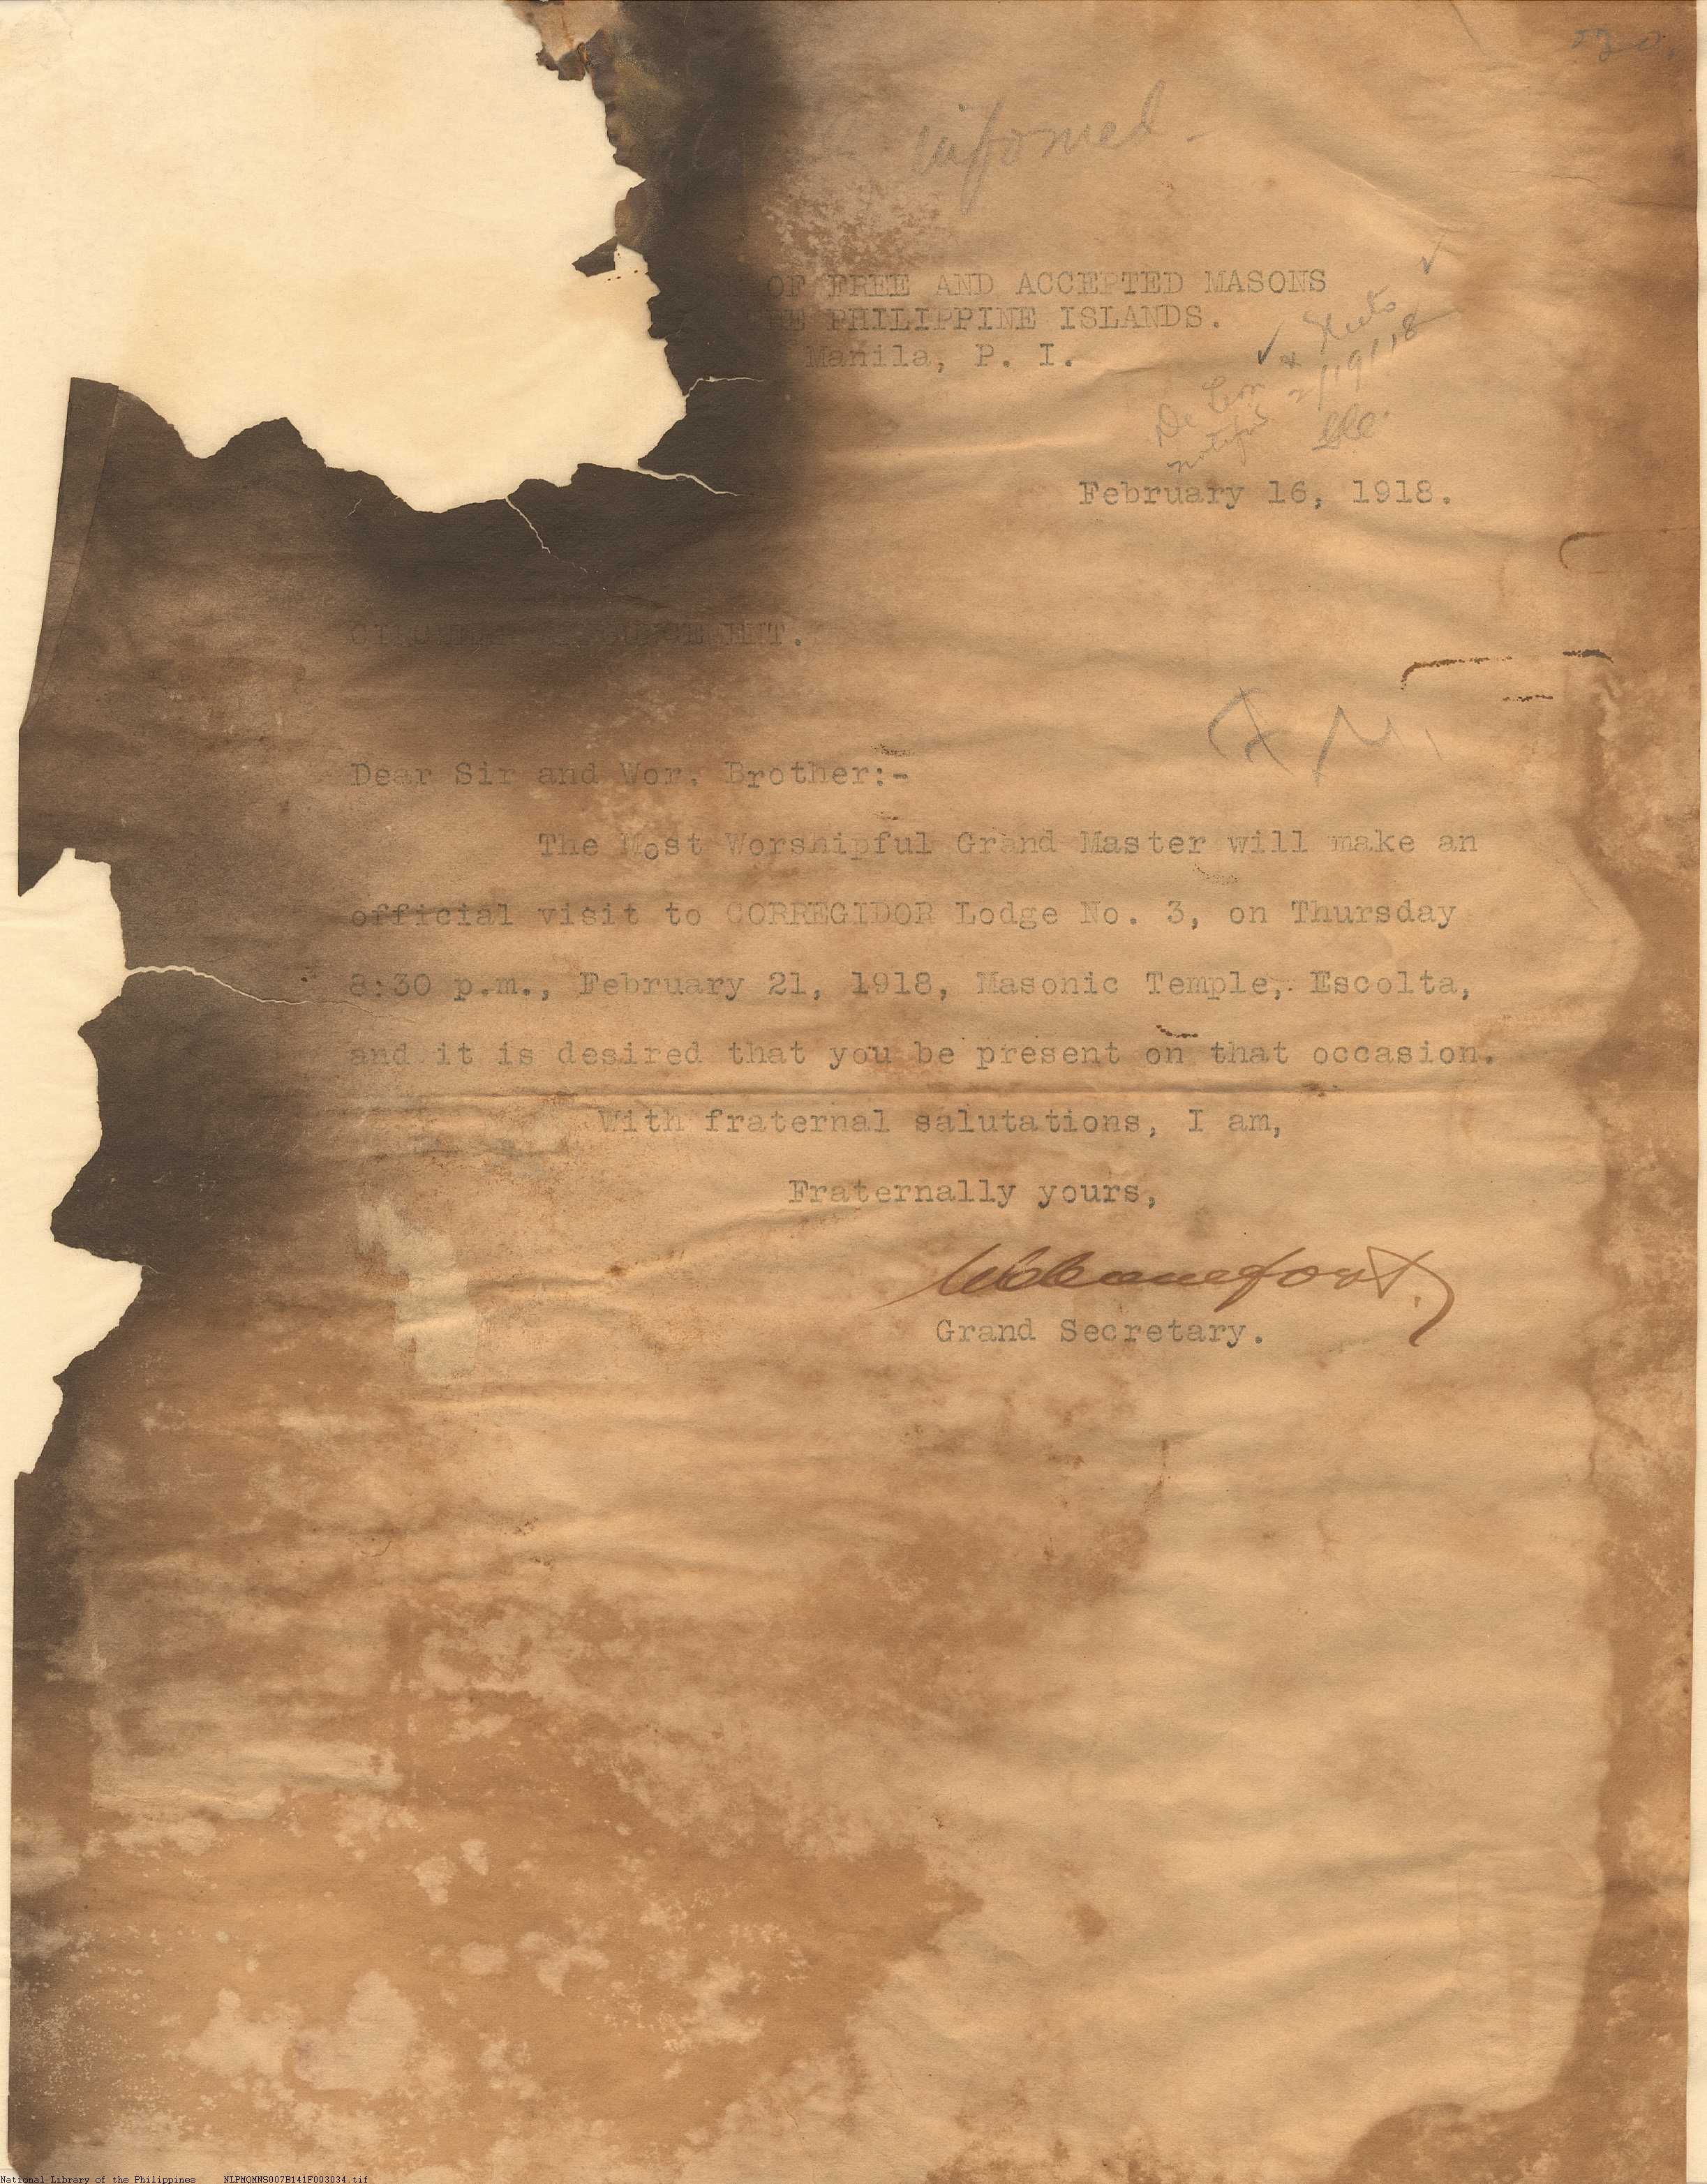 informed -
OF FREE AND ACCEPTED MASONS
THE PHILIPPINE ISLANDS.
Manila, P. I.
De Leon &
notified 2/19/18
February 16, 1918.
CIRCULAR ANNOUNCEMENT.
Dear Sir and Wor. Brother:-
The Most Worshipful Grand Master will make an
official visit to CORREGIDOR Lodge No. 3, on Thursday
8:30 p.m., February 21, 1918, Masonic Temple, Escolta,
and it is desired that you be present on that occasion.
With fraternal salutations, I am,
Fraternally yours,
Grand Secretary.
National Library of the Philippines NLPMQMNS007B141F003034.tif